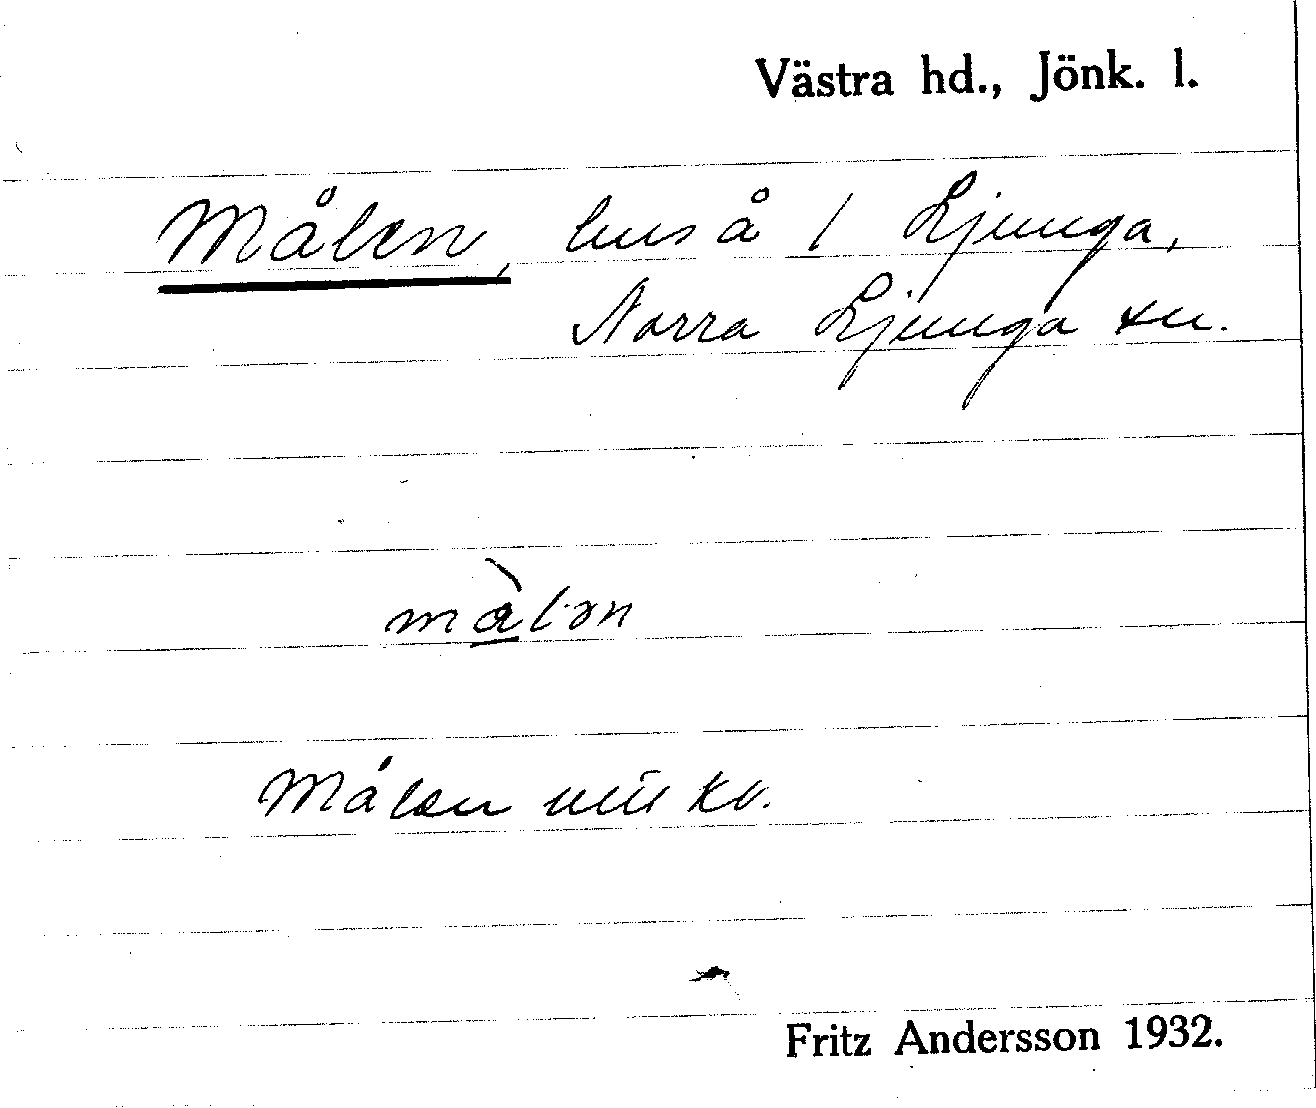 Västra hd., Jönk. l.
Målen, hus å 1 Ljunga,
Norra Ljunga sn.
mål·ən
Målen kv.
Fritz Andersson 1932.